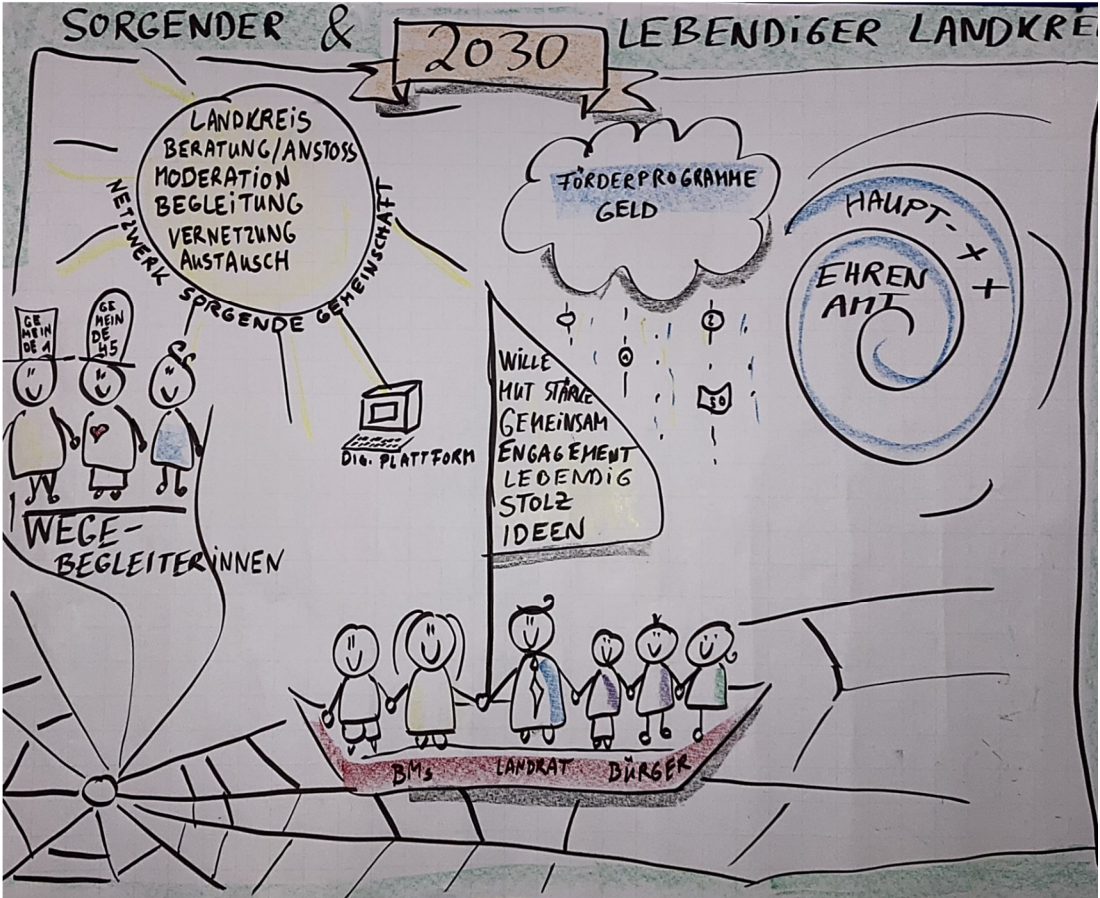 SORGENDER & 2030 LEBENDIGER LANDKREI
LANDKREIS
BERATUNG/ANSTOSS
MODERATION
BEGLEITUNG
VERNETZUNG
AUSTAUSCH
NETZWERK SORGENDE GEMEINSCHAFT
FÖRDERPROGRAMME
GELD
HAUPT- X +
+
EHREN
AMT
GE
MEIN
DE 1
GE
MEIN
DE
45
2
1
50
DIG. PLATTFORM
WILLE
MUT STÄRKE
GEMEINSAM
ENGAGEMENT
LEBENDIG
STOLZ
IDEEN
WEGE-
BEGLEITERINNEN
BMs LANDRAT BÜRGER